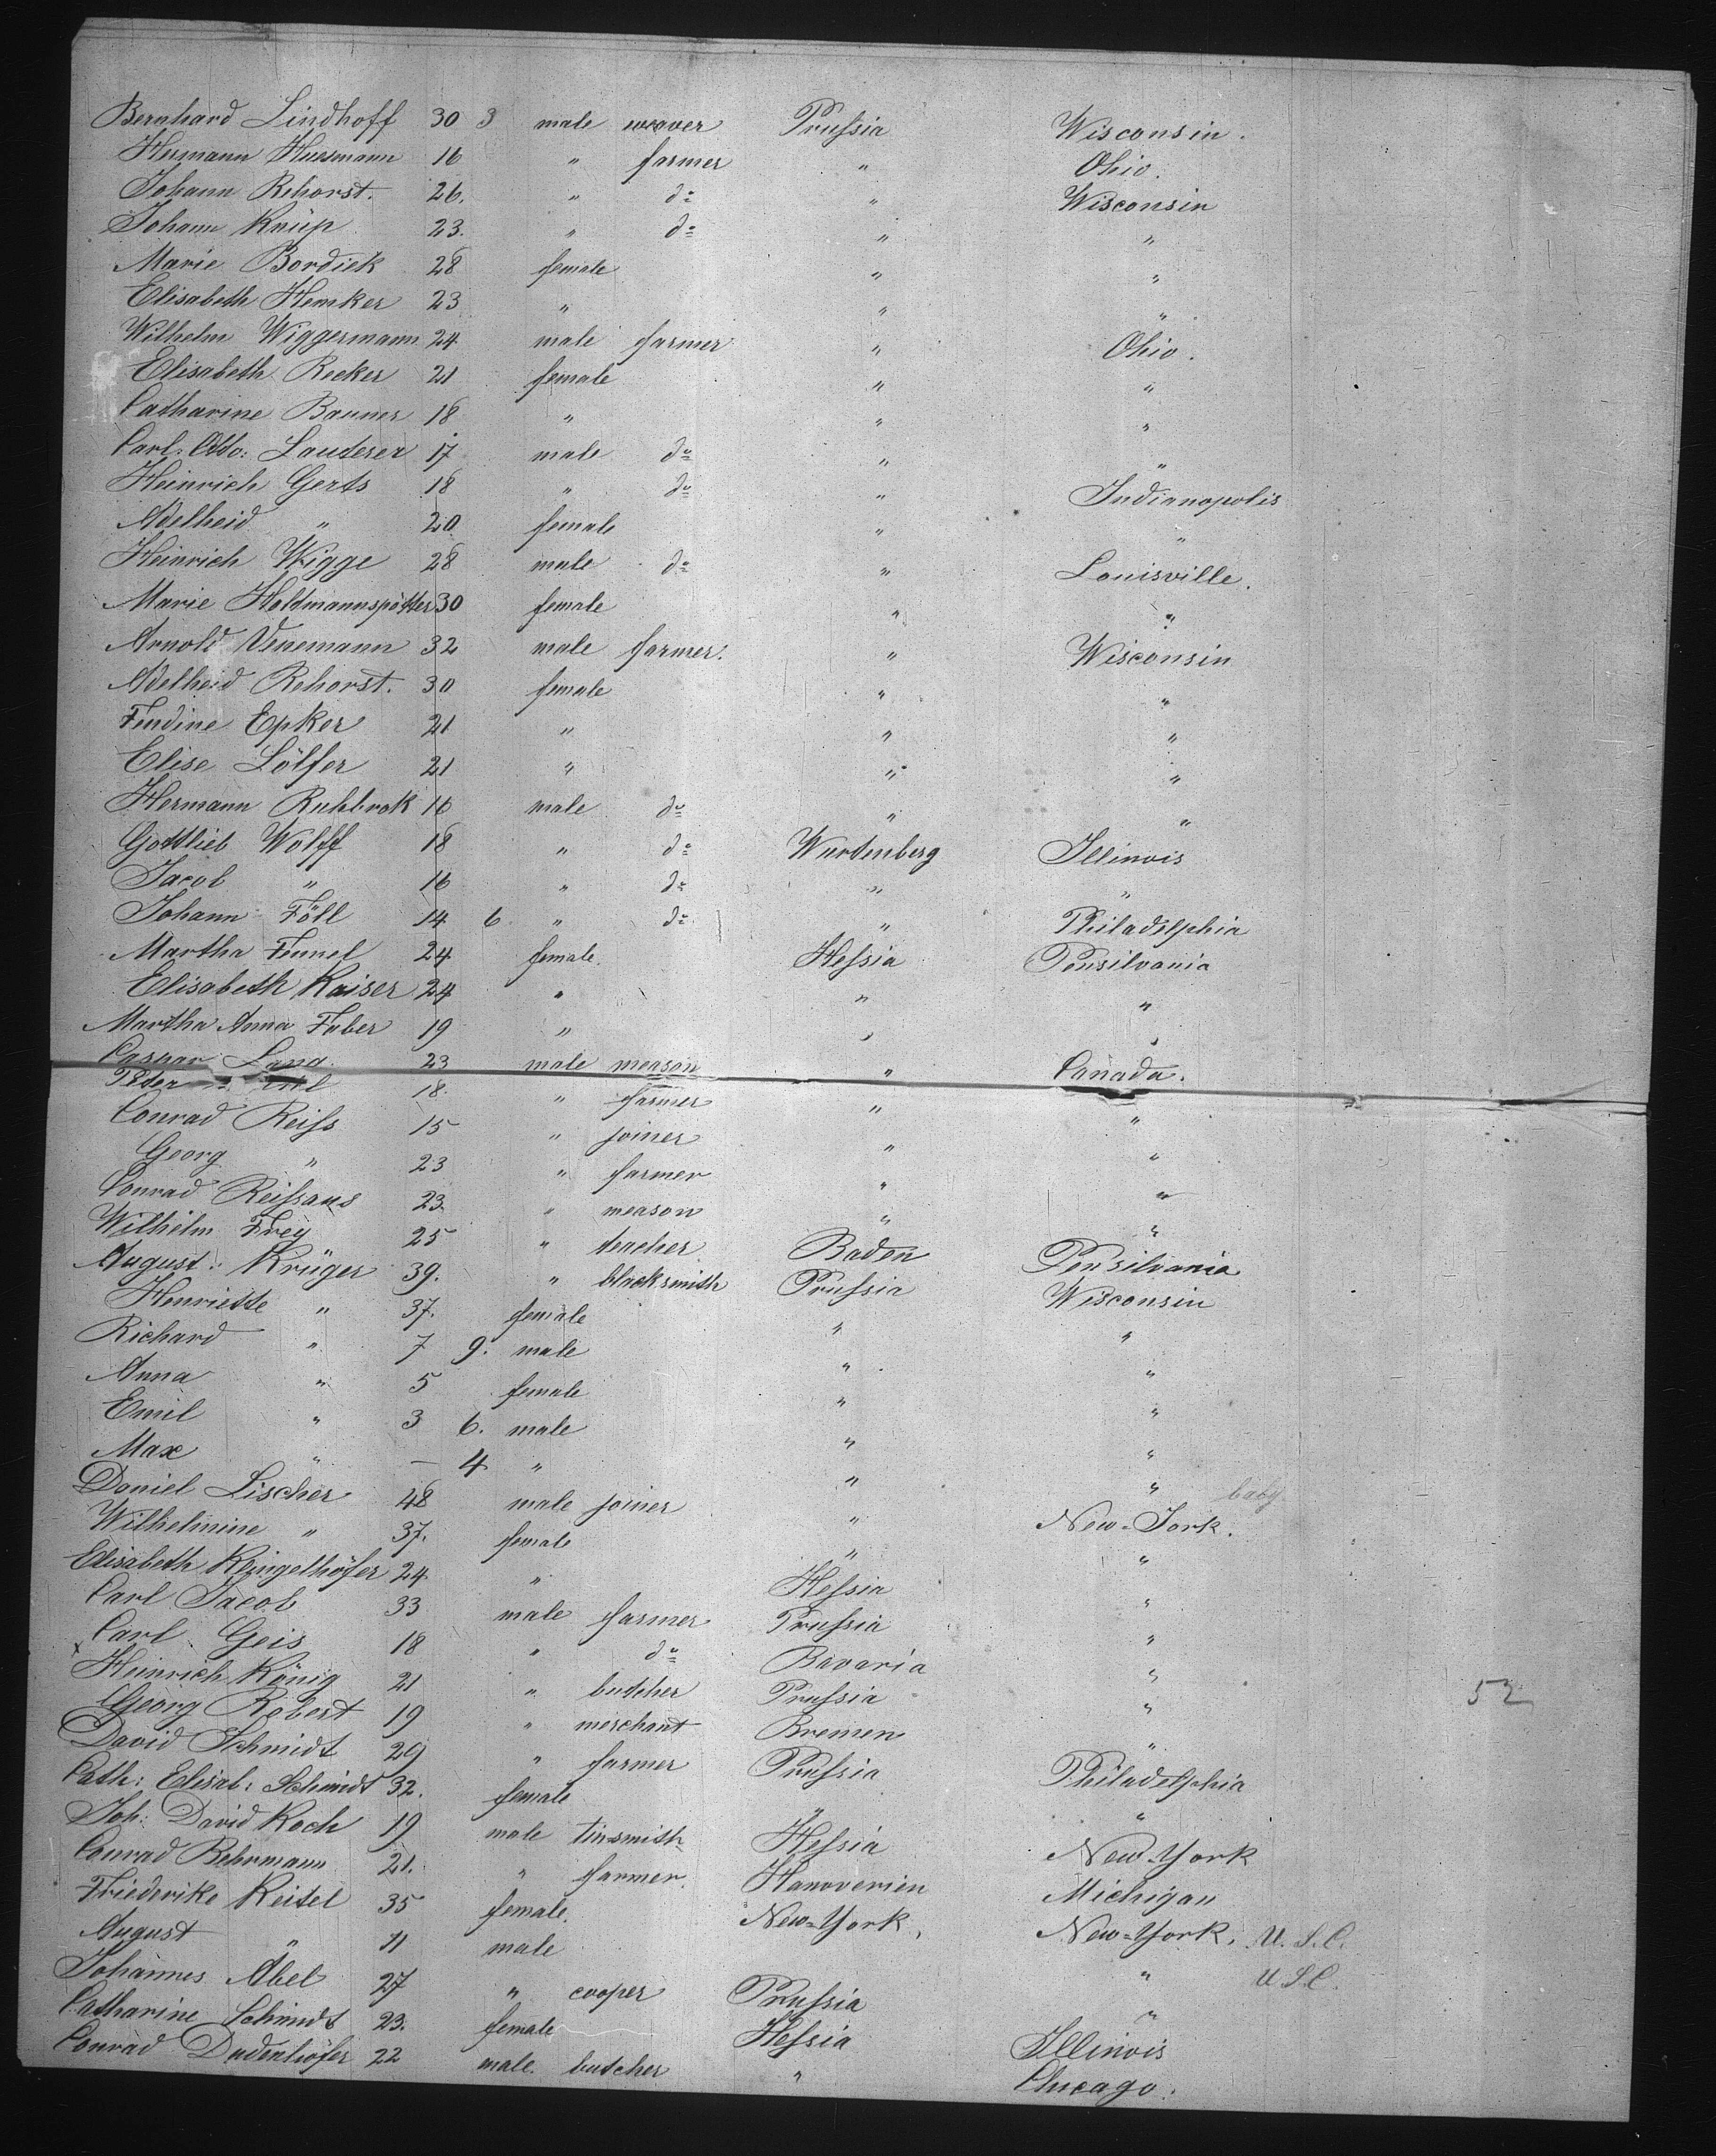 Bernhard Lindhoff 30 3 male weaver Prussia Wisconsin.
Hermann Husmann 16 " farmer " Ohio.
Johann Rehorst. 26. " do " Wisconsin
Johann Knüp 23. " do " "
Marie Bordiek 28 female " "
Elisabeth Hemker 23 " " "
Wilhelm Wiggermann 24 male farmer " Ohio.
Elisabeth Recker 21 female " "
Catharine Baumer 18 " " "
Carl Otto: Lauderer 17 male do " "
Heinrich Gerts 18 " do " Indianopolis
Adelheid " 20 female " "
Heinrich Wigge 28 male do " Louisville.
Marie Holdmannspötter 30 female " "
Arnold Venemann 32 male farmer. " Wisconsin
Adelheid Rehorst. 30 female " "
Findine Epker 21 " " "
Elise Lölfer 21 " " "
Hermann Ruhbrok 16 male do " "
Gottlieb Wolff 18 " do Wurtenberg Illinois
Jacob " 16 " do " "
Johann Föll 14 6 " do " Philadelphia
Martha Fennel 24 female Hessia Pensilvania
Elisabeth Kaiser 24 " " "
Martha Anna Faber 19 " " "
Caspar Lang 23 male meason " Canada.
Peter 18. " farmer " "
Conrad Reiss 15 " joiner " "
Georg " 23 " farmer " "
Conrad Reissaus 23. " meason " "
Wilhelm Frey 25 " teacher Baden Pensilvania
August Krüger 39. " blacksmith Prussia Wisconsin
Henriette " 37. female " "
Richard " 7 9. male " "
Anna " 5 female " "
Emil " 3 6. male " "
Max " — 4 " " " baby
Daniel Lischer 48 male joiner " New-York.
Wilhelmine " 37. female " "
Elisabeth Klingelhöfer 24 " Hessia "
Carl Jacob 33 male farmer Prussia "
x Carl Geis 18 " do Bavaria "
Heinrich König 21 " butcher Prussia " 52
Georg Robert 19 " merchant Bremen "
David Schmidt 29 " farmer Prussia Philadelphia
Cath: Elisab: Schmidt 32. female " "
Joh: David Koch 19 male tinsmith Hessia New-York
Conrad Behrmann 21. " farmer. Hanoverien Michigan
Friederike Keitel 35 female. New-York, New-York, U.S.C.
August " 11 male " U.S.C.
Johannes Abel 27 " cooper Prussia "
Catharine Schmidt 23. female Hessia Illinois
Conrad Dudenhöfer 22 male. butcher " Chicago.